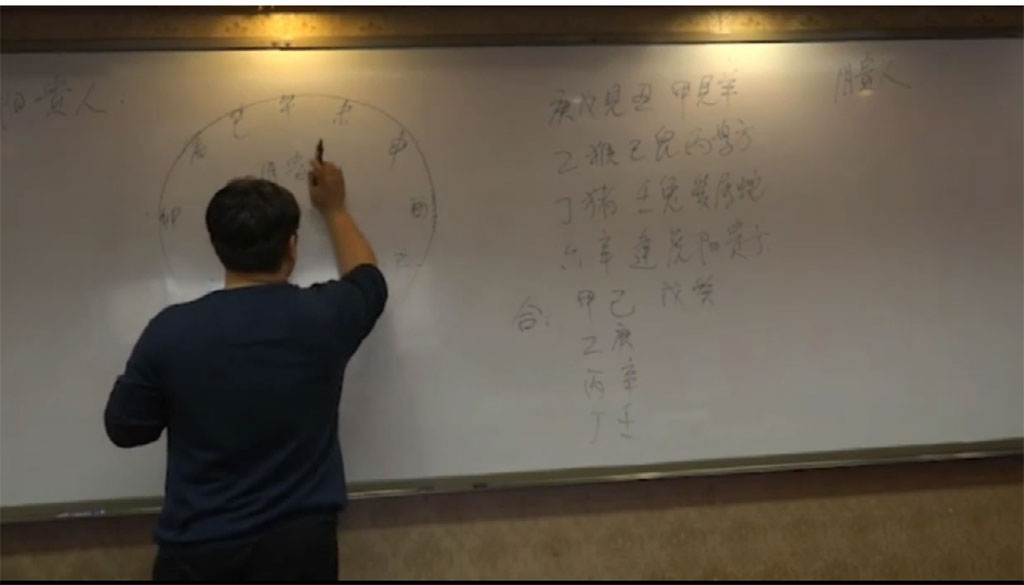 阳贵人.
巳 午 未
辰 申
卯 酉
庚戊見丑 甲見羊
乙猴己鼠丙鸡方
丁猪壬兔癸居蛇
六辛逢虎阳贵方
合: 甲己 戊癸
乙庚
丙辛
丁壬
阴貴人